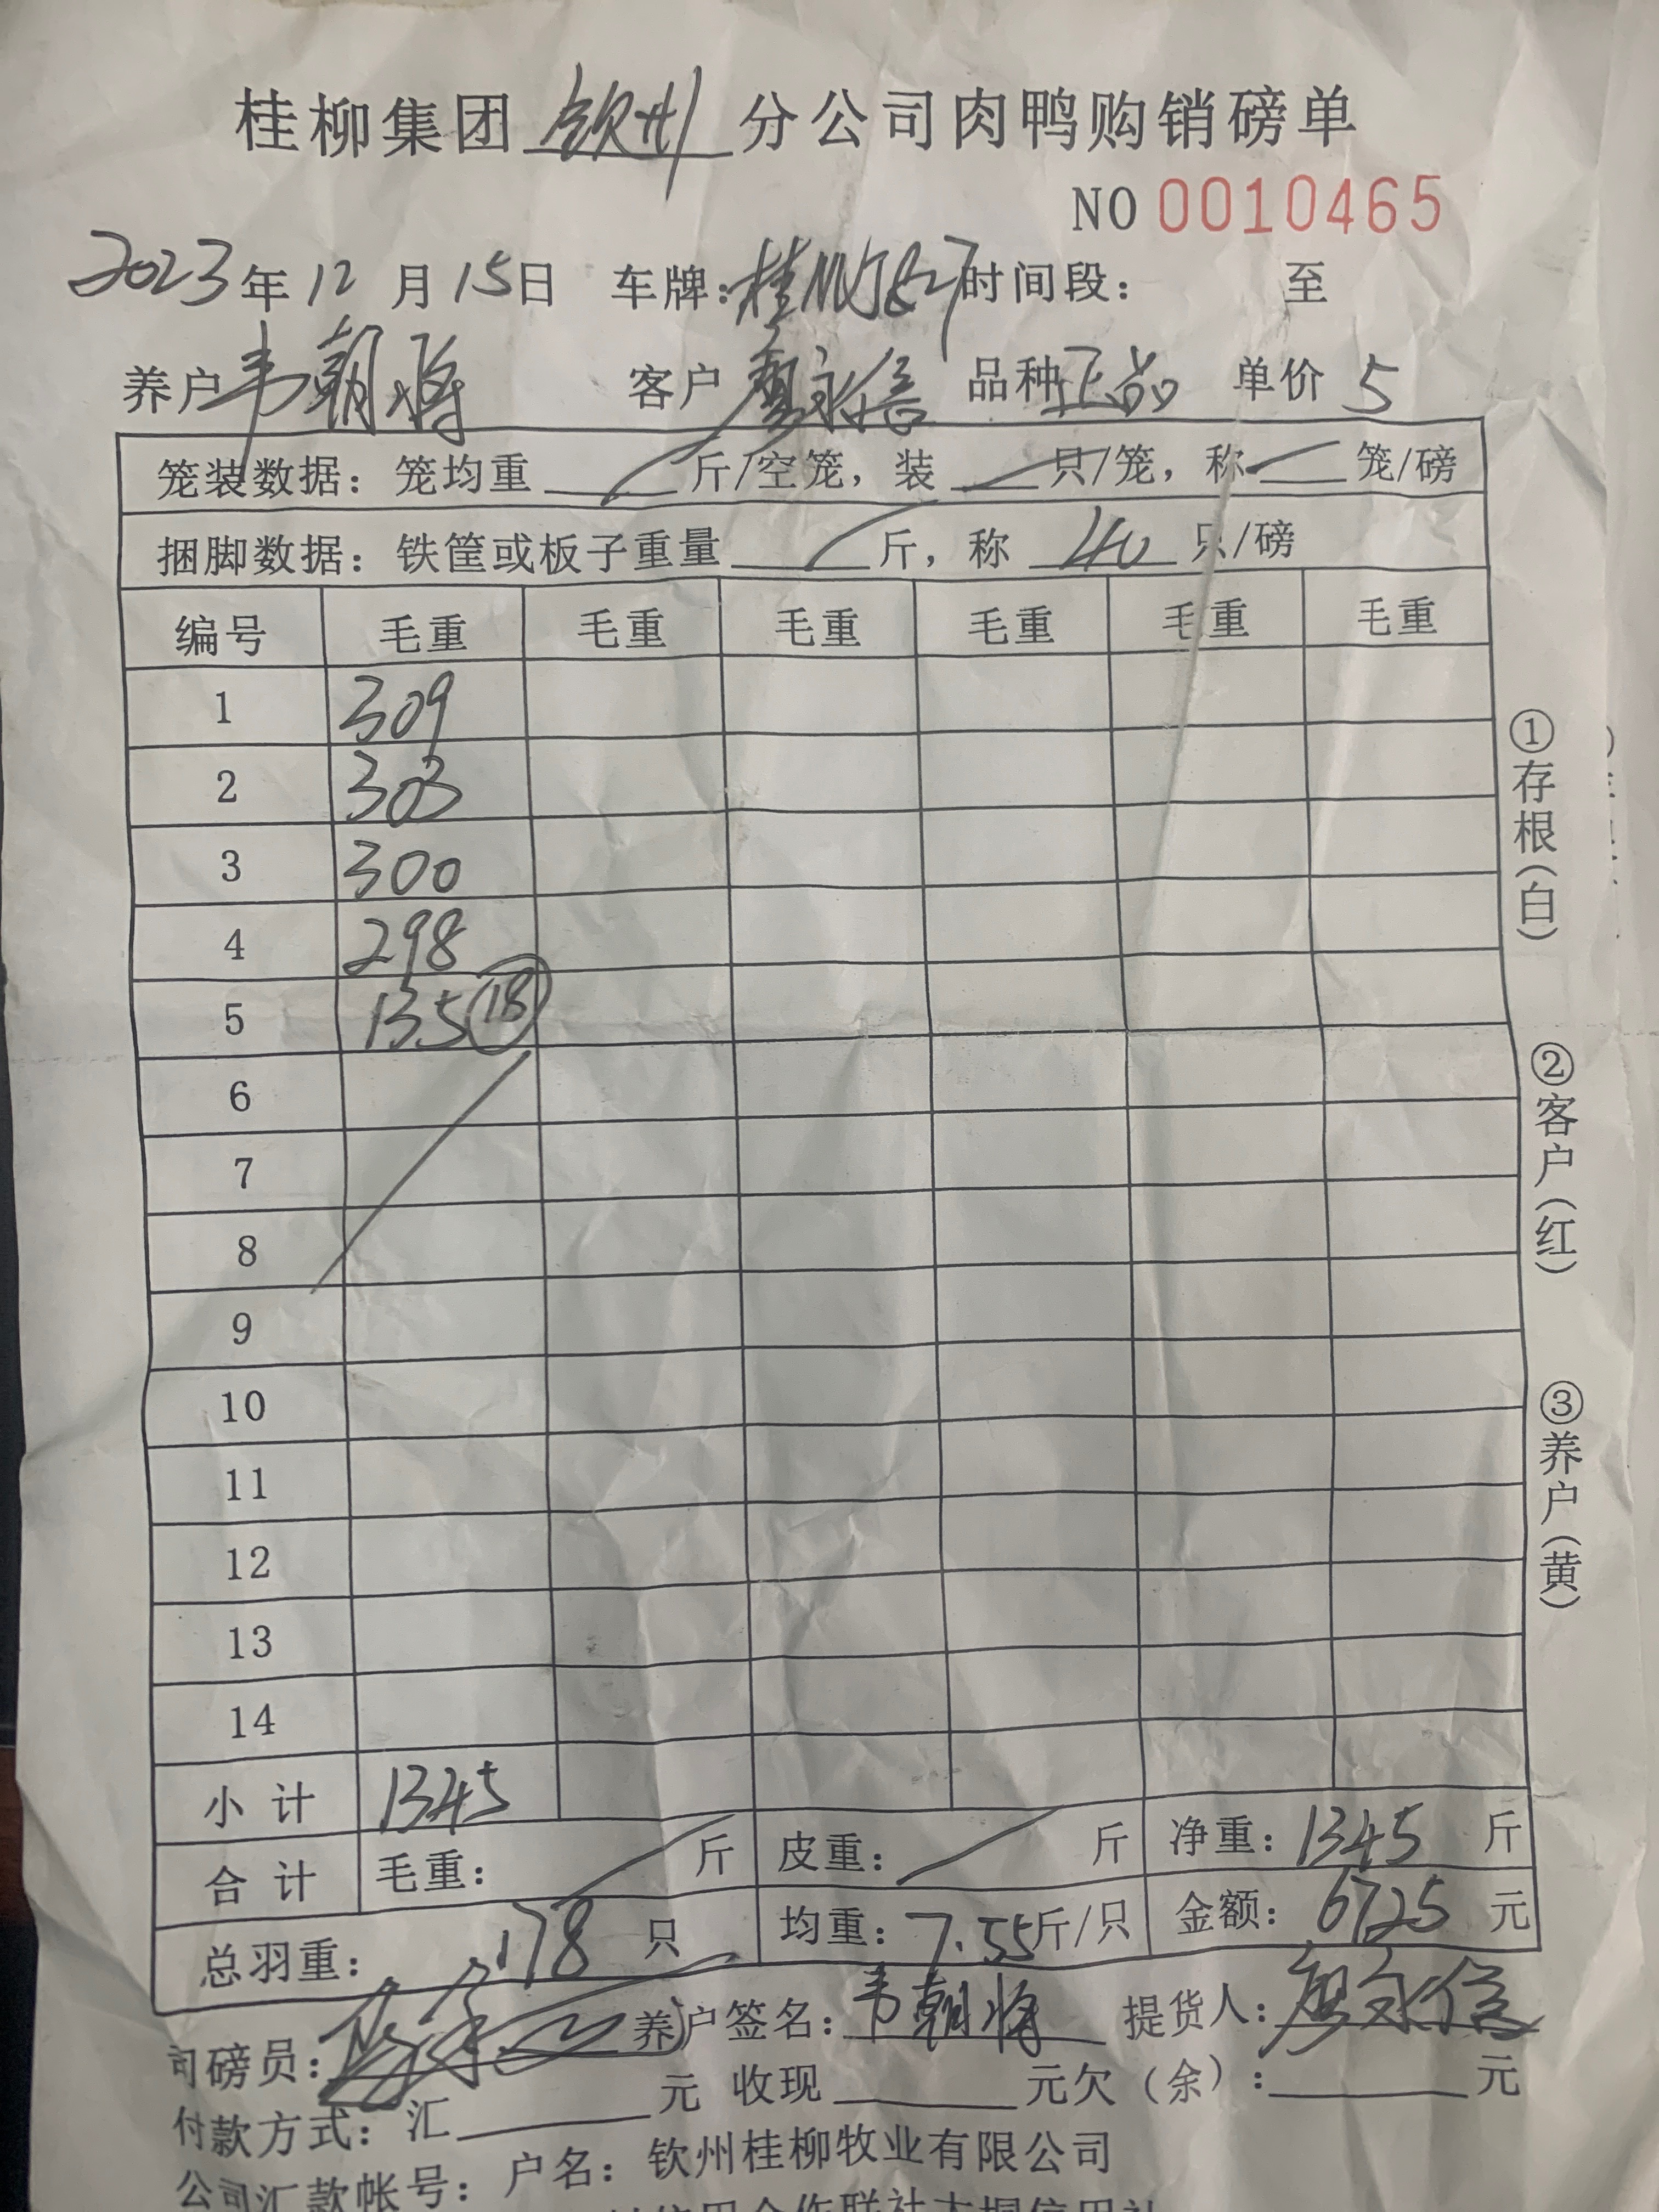 桂柳集团钦州分公司肉鸭购销磅单
NO 0010465
2023年12月15日 车牌:桂 时间段: 至
养户韦朝将 客户廖永信 品种正品 单价 5
笼装数据:笼均重 斤/空笼,装 只/笼,称 笼/磅
捆脚数据:铁筐或板子重量 斤,称 40 只/磅
编号 毛重 毛重 毛重 毛重 毛重 毛重
1 309
2 303
3 300
4 298
5 135 18
6
7
8
9
10
11
12
13
14
小计 1345
合计 毛重: 斤 皮重: 斤 净重:1345 斤
总羽重: 178 只 均重:7.55斤/只 金额:6725 元
司磅员: 养户签名:韦朝将 提货人:廖永信
付款方式:汇 元 收现 元欠(余): 元
公司汇款帐号:户名:钦州桂柳牧业有限公司
①存根(白)
②客户(红)
③养户(黄)